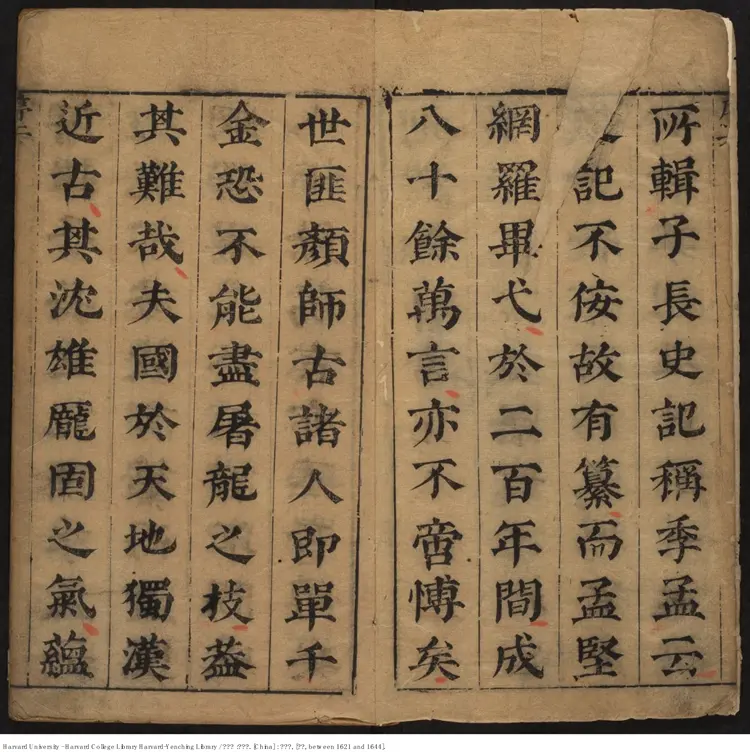 所輯子長史記稱季孟云
記不佞故有纂而孟堅
網羅畢弋於二百年間成
八十餘萬言亦不啻愽矣
世匪顏師古諸人即單千
金恐不能盡屠龍之枝葢
其難哉夫國於天地獨漢
近古其沈雄龐固之氣蘊
序二
Harvard University - Harvard College Library Harvard-Yenching Library / ??? : ???. [China] : ???, [??, between 1621 and 1644].